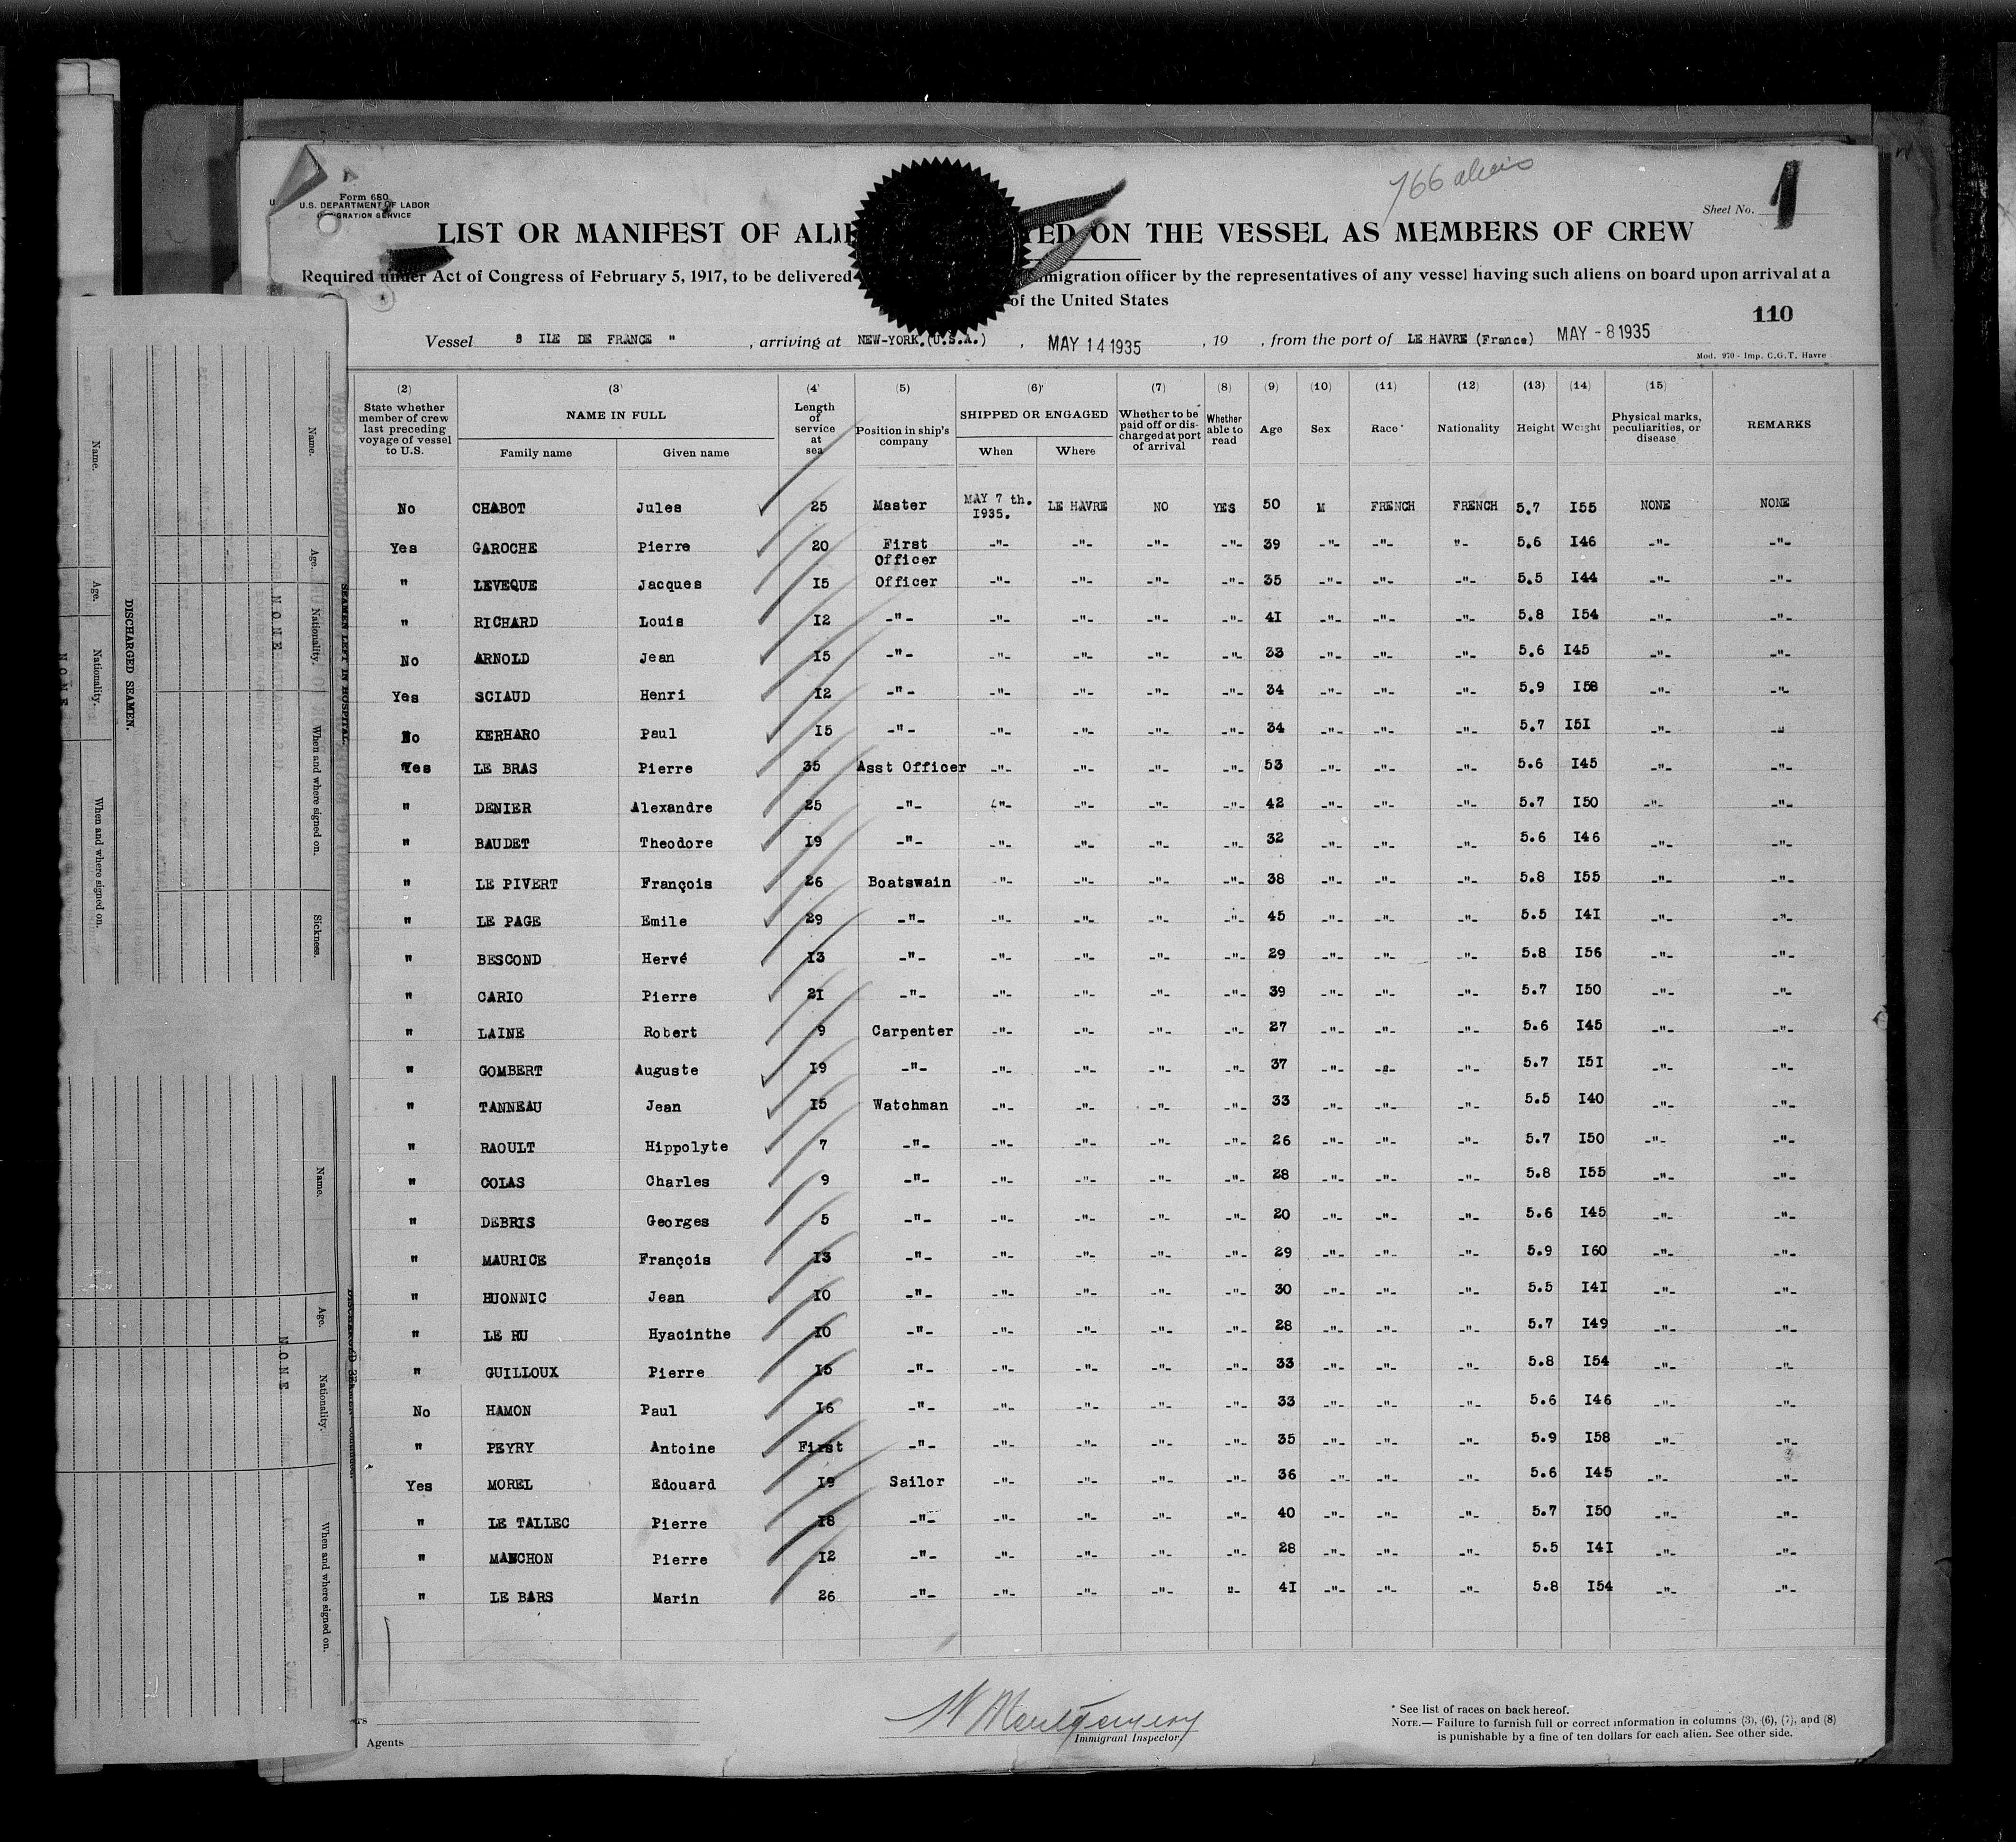 766 aliens
Form 680
U.S. DEPARTMENT OF LABOR
IMMIGRATION SERVICE
Sheet No. 1
LIST OR MANIFEST OF ALIE TED ON THE VESSEL AS MEMBERS OF CREW
Required under Act of Congress of February 5, 1917, to be delivered immigration officer by the representatives of any vessel having such aliens on board upon arrival at a
of the United States
110
Vessel " ILE DE FRANCE " , arriving at NEW-YORK.(U.S.A.) , MAY 14 1935 , 19 , from the port of LE HAVRE (France) MAY - 8 1935
Mod. 970 - Imp. C.G.T. Havre
(2) (3) (4) (5) (6) (7) (8) (9) (10) (11) (12) (13) (14) (15)
State whether member of crew last preceding voyage of vessel to U.S. NAME IN FULL Length of service at sea Position in ship's company SHIPPED OR ENGAGED Whether to be paid off or discharged at port of arrival Whether able to read Age Sex Race* Nationality Height Weight Physical marks, peculiarities, or disease REMARKS
Family name Given name When Where
No CHABOT Jules 25 Master MAY 7 th. 1935. LE HAVRE NO YES 50 M FRENCH FRENCH 5.7 I55 NONE NONE
Yes GAROCHE Pierre 20 First Officer -"- -"- -"- -"- 39 -"- -"- "- 5.6 I46 -"- -"-
" LEVEQUE Jacques I5 Officer -"- -"- -"- -"- 35 -"- -"- -"- 5.5 I44 -"- -"-
" RICHARD Louis I2 -"- -"- -"- -"- -"- 4I -"- -"- -"- 5.8 I54 -"- -"-
No ARNOLD Jean I5 -"- -"- -"- -"- -"- 33 -"- -"- -"- 5.6 I45 -"- -"-
Yes SCIAUD Henri I2 -"- -"- -"- -"- -"- 34 -"- -"- -"- 5.9 I58 -"- -"-
No KERHARO Paul I5 -"- -"- -"- -"- -"- 34 -"- -"- -"- 5.7 I5I -"- -"-
Yes LE BRAS Pierre 35 Asst Officer -"- -"- -"- -"- 53 -"- -"- -"- 5.6 I45 -"- -"-
" DENIER Alexandre 25 -"- -"- -"- -"- -"- 42 -"- -"- -"- 5.7 I50 -"- -"-
" BAUDET Theodore I9 -"- -"- -"- -"- -"- 32 -"- -"- -"- 5.6 I46 -"- -"-
" LE PIVERT François 26 Boatswain -"- -"- -"- -"- 38 -"- -"- -"- 5.8 I55 -"- -"-
" LE PAGE Emile 29 -"- -"- -"- -"- -"- 45 -"- -"- -"- 5.5 I4I -"- -"-
" BESCOND Hervé I3 -"- -"- -"- -"- -"- 29 -"- -"- -"- 5.8 I56 -"- -"-
" CARIO Pierre 2I -"- -"- -"- -"- -"- 39 -"- -"- -"- 5.7 I50 -"- -"-
" LAINE Robert 9 Carpenter -"- -"- -"- -"- 27 -"- -"- -"- 5.6 I45 -"- -"-
" GOMBERT Auguste I9 -"- -"- -"- -"- -"- 37 -"- -"- -"- 5.7 I5I -"- -"-
" TANNEAU Jean I5 Watchman -"- -"- -"- -"- 33 -"- -"- -"- 5.5 I40 -"- -"-
" RAOULT Hippolyte 7 -"- -"- -"- -"- -"- 26 -"- -"- -"- 5.7 I50 -"- -"-
" COLAS Charles 9 -"- -"- -"- -"- -"- 28 -"- -"- -"- 5.8 I55 -"- -"-
" DEBRIS Georges 5 -"- -"- -"- -"- -"- 20 -"- -"- -"- 5.6 I45 -"- -"-
" MAURICE François I3 -"- -"- -"- -"- -"- 29 -"- -"- -"- 5.9 I60 -"- -"-
" HUONNIC Jean I0 -"- -"- -"- -"- -"- 30 -"- -"- -"- 5.5 I4I -"- -"-
" LE RU Hyacinthe I0 -"- -"- -"- -"- -"- 28 -"- -"- -"- 5.7 I49 -"- -"-
" GUILLOUX Pierre I5 -"- -"- -"- -"- -"- 33 -"- -"- -"- 5.8 I54 -"- -"-
No HAMON Paul I6 -"- -"- -"- -"- -"- 33 -"- -"- -"- 5.6 I46 -"- -"-
" PEYRY Antoine First -"- -"- -"- -"- -"- 35 -"- -"- -"- 5.9 I58 -"- -"-
Yes MOREL Edouard I9 Sailor -"- -"- -"- -"- 36 -"- -"- -"- 5.6 I45 -"- -"-
" LE TALLEC Pierre I8 -"- -"- -"- -"- -"- 40 -"- -"- -"- 5.7 I50 -"- -"-
" MANCHON Pierre I2 -"- -"- -"- -"- -"- 28 -"- -"- -"- 5.5 I4I -"- -"-
" LE BARS Marin 26 -"- -"- -"- -"- "- 4I -"- -"- -"- 5.8 I54 -"- -"-
W Montgomery
Immigrant Inspector
Agents
* See list of races on back hereof.
NOTE.— Failure to furnish full or correct information in columns (3), (6), (7), and (8)
is punishable by a fine of ten dollars for each alien. See other side.
SEAMEN LEFT IN HOSPITAL.
Name. Age. Nationality. When and where signed on. Sickness.
NONE
DISCHARGED SEAMEN.
Name. Age. Nationality. When and where signed on.
NONE
Name. Age. Nationality. When and where signed on.
NONE